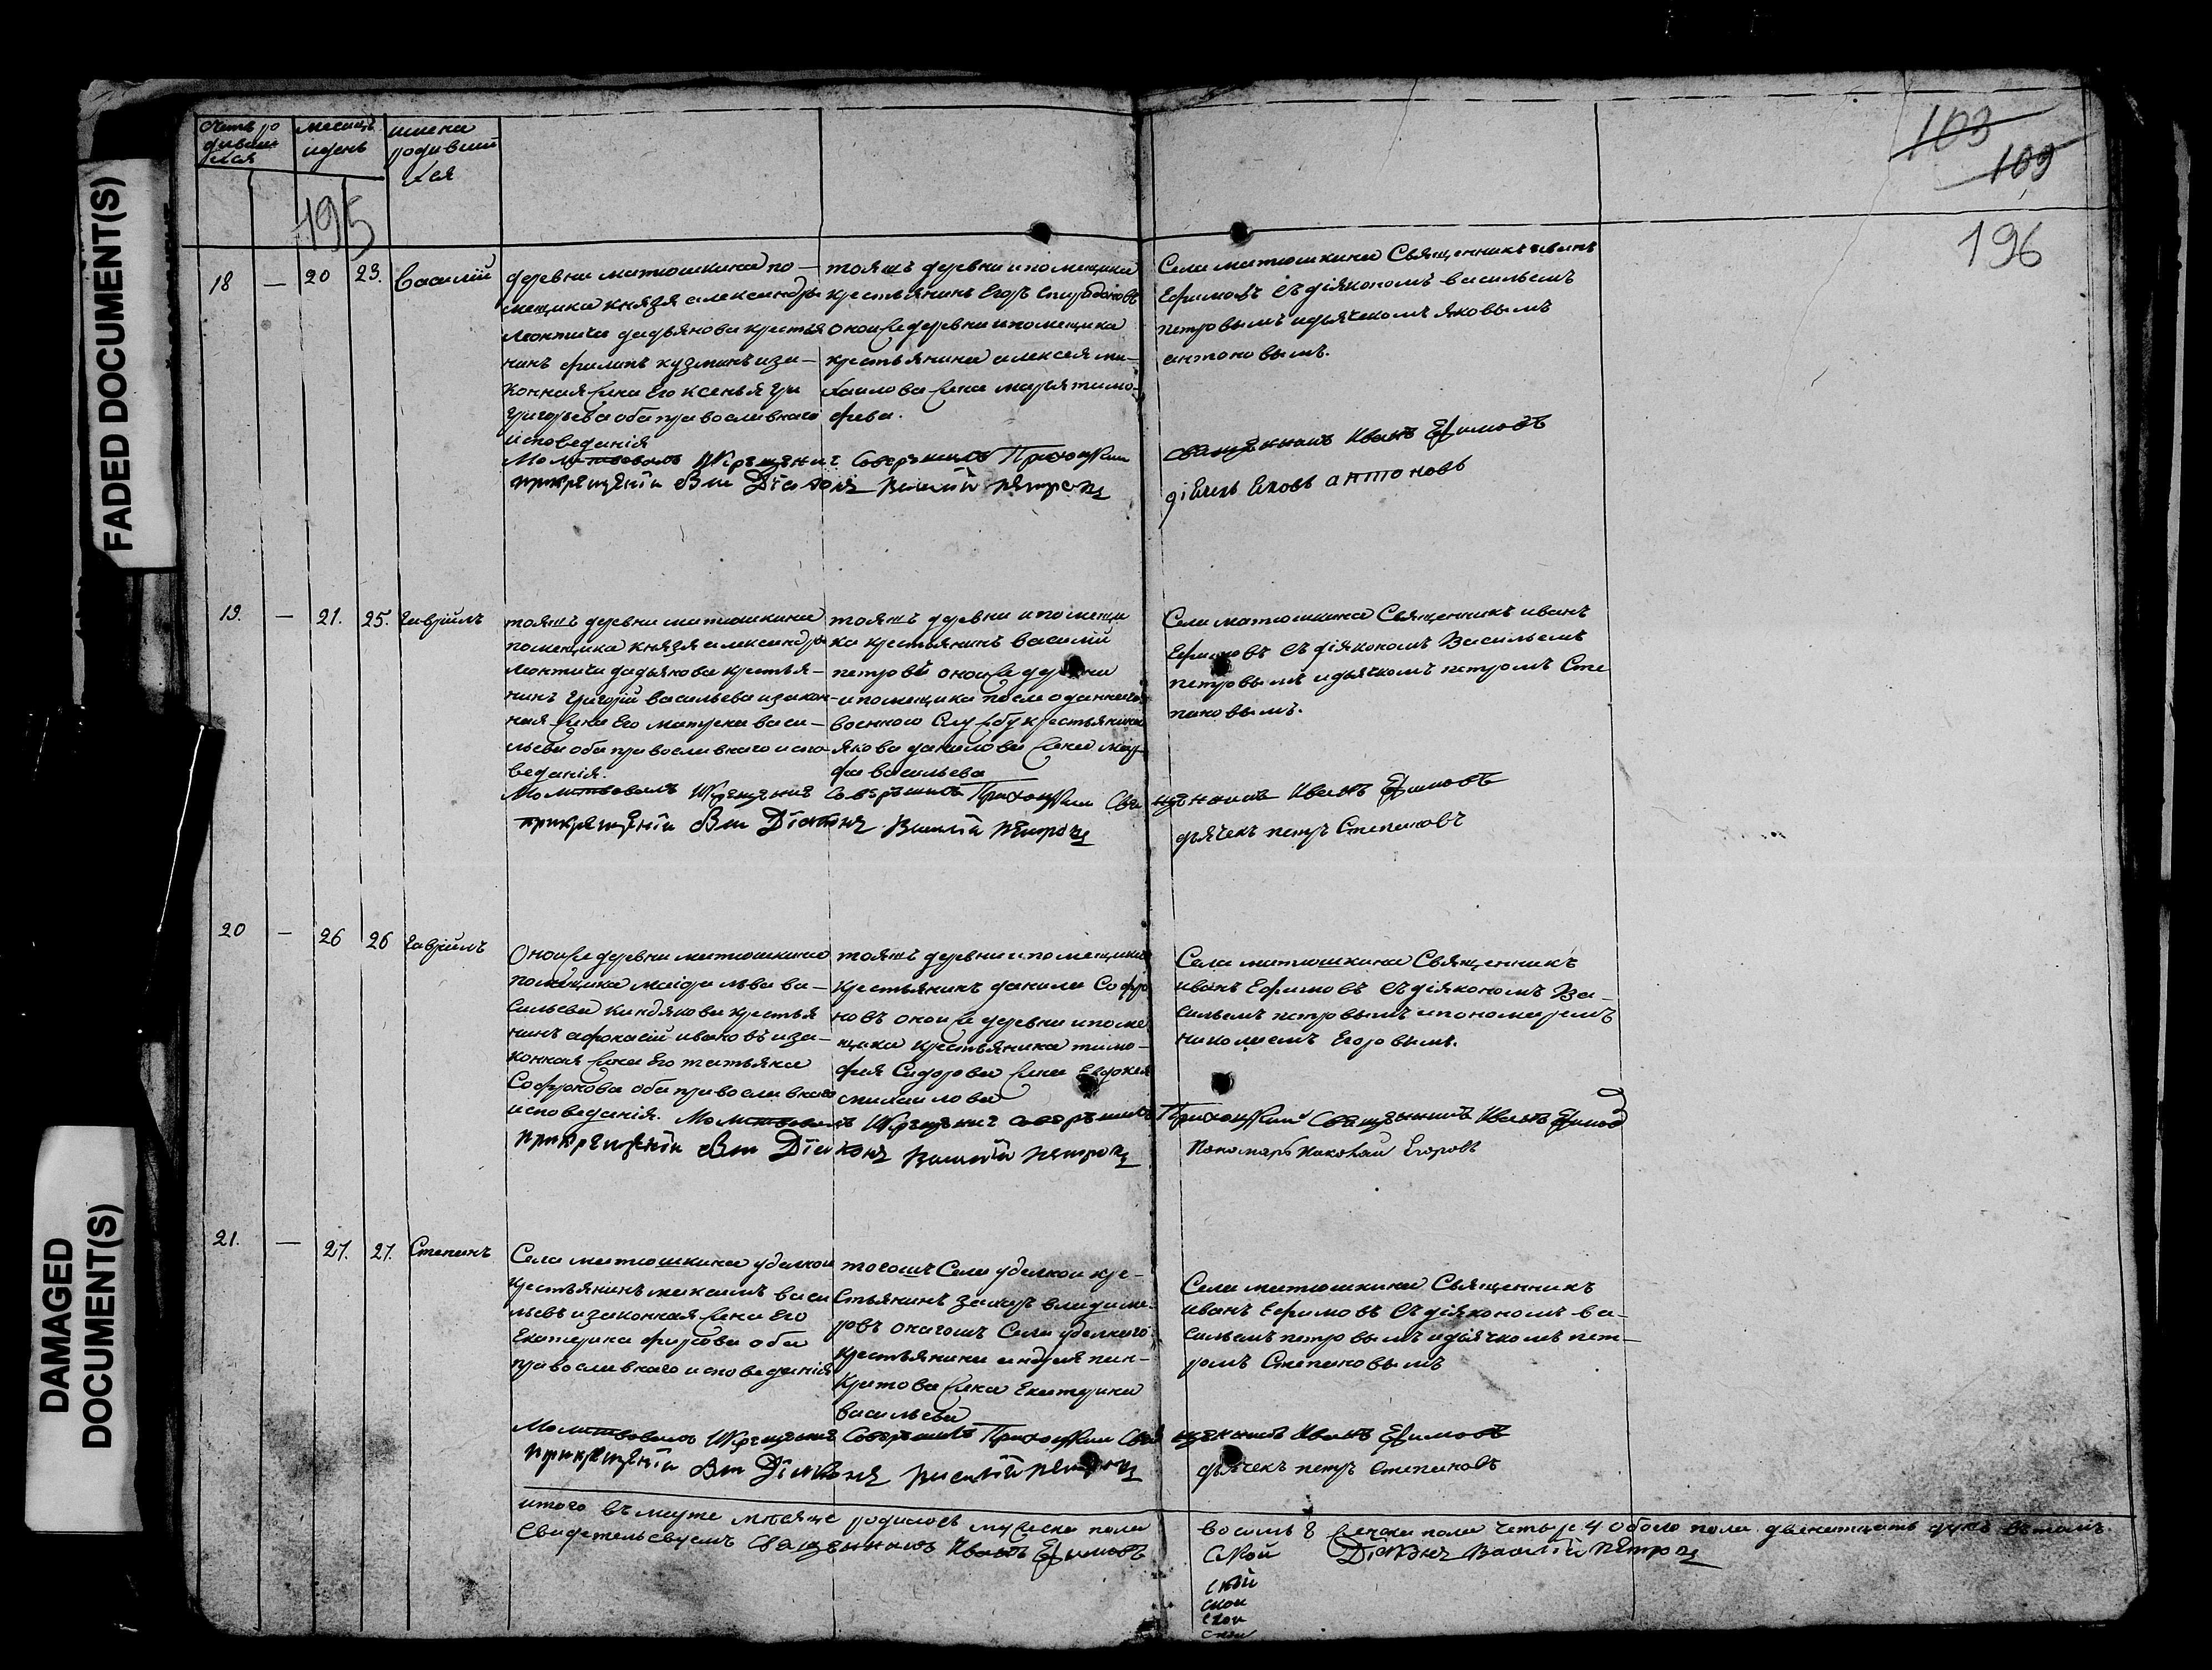 FADED DOCUMENT(S)
DAMAGED
DOCUMENT(S)
счетъ ро
дившых
ся
месяцъ
идень
имена
родивший
ся
195
103
109
196
18 — 20 23. Василiй
деревни матюшкина по—
мещика князя александра
леонтича дадьянова крестья
нинъ филипъ кузминъ иза—
конная жена его ксенья гри
григорьева оба православнаго
исповеданiя
тояжъ деревни ипомещика
крестьянинъ Егоръ Спиридоновъ
онойже деревни ипомещика
крестьянина алексея ми—
хаилова жена марья тимо—
феева.
Села матюшкина Священникъ иванъ
Ефимовъ съ дiякономъ васильемъ
петровымъ идьячкомъ яковымъ
антоновымъ.
Молитвовалъ Икрещение Совершилъ Приходский
священникъ Иванъ Ефимовъ
прикрещенiи былъ Дiаконъ Василiй Петровъ
дiячекъ Яковъ антоновъ
19. — 21. 25. Гаврiилъ
тояжъ деревни матюшкина
помещика князя александра
леонтича дадьянова крестья—
нинъ григорiй васильевъ изакон—
ная жена Его матрена васи—
льева оба православнаго испо
веданiя.
тояжъ деревни ипомещи
ка крестьянинъ василiй
петровъ онойже деревни
ипомещика после отданнаго
военною Службу крестьянина
якова данилова жена мар
фа васильева
Села матюшкина Священникъ иванъ
Ефимовъ съ дiякономъ Васильемъ
петровымъ идьячкомъ петромъ Сте
пановымъ.
Молитвовалъ Икрещение Совершилъ Приходский Священникъ Иванъ Ефимовъ
прикрещенiи былъ Дiаконъ Василiй Петровъ
дьячекъ петръ Степановъ
20 — 26 26 Гаврiилъ
Онойже деревни матюшкина
помещика маiора льва ва—
сильева киндякова крестья
нинъ афонасiй ивановъ иза—
конная жена Его татьяна
Софронова оба православнаго
исповеданiя.
тояжъ деревни ипомещика
крестьянинъ данила Софро
новъ онойже деревни ипоме
щика крестьянина тимо—
фея Сидорова жена Евдокея
михаилова
Села матюшкина Священникъ
иванъ Ефимовъ съ дiякономъ Ва—
сильемъ петровымъ ипономаремъ
николаемъ Егоровымъ.
Молитвовалъ Икрещение совершилъ Приходский Священникъ Иванъ Ефимовъ
прикрещенiи былъ Дiаконъ Василiй Петровъ
Пономарь Николай Егоровъ
21. — 27. 27. Степанъ
Села матюшкина уделной
крестьянинъ максимъ васи
льевъ изаконная жена Его
Екатерина фирсова оба
православнаго исповеданiя
тогожъ Села уделной кре—
стьянинъ Захаръ владими—
ровъ онагожъ Села уделнаго
крестьянина андрея пан—
кратова жена Екатерина
васильева
Села матюшкина Священникъ
иванъ Ефимовъ съ дiякономъ ва—
сильемъ петровымъ идьячкомъ пет—
ромъ Степановымъ
Молитвовалъ Икрещение Совершилъ Приходский Священникъ Иванъ Ефимовъ
прикрещенiи былъ Дiаконъ Василiй Петровъ
дьячекъ петръ Степановъ
итого въ марте месяце родилось мужеска пола восемь 8 женска пола четыре 4 обоего пола двенатцать душъ въ томъ
Свидетельсвуемъ Священникъ Иванъ Ефимовъ
Дiаконъ Василiй Петровъ